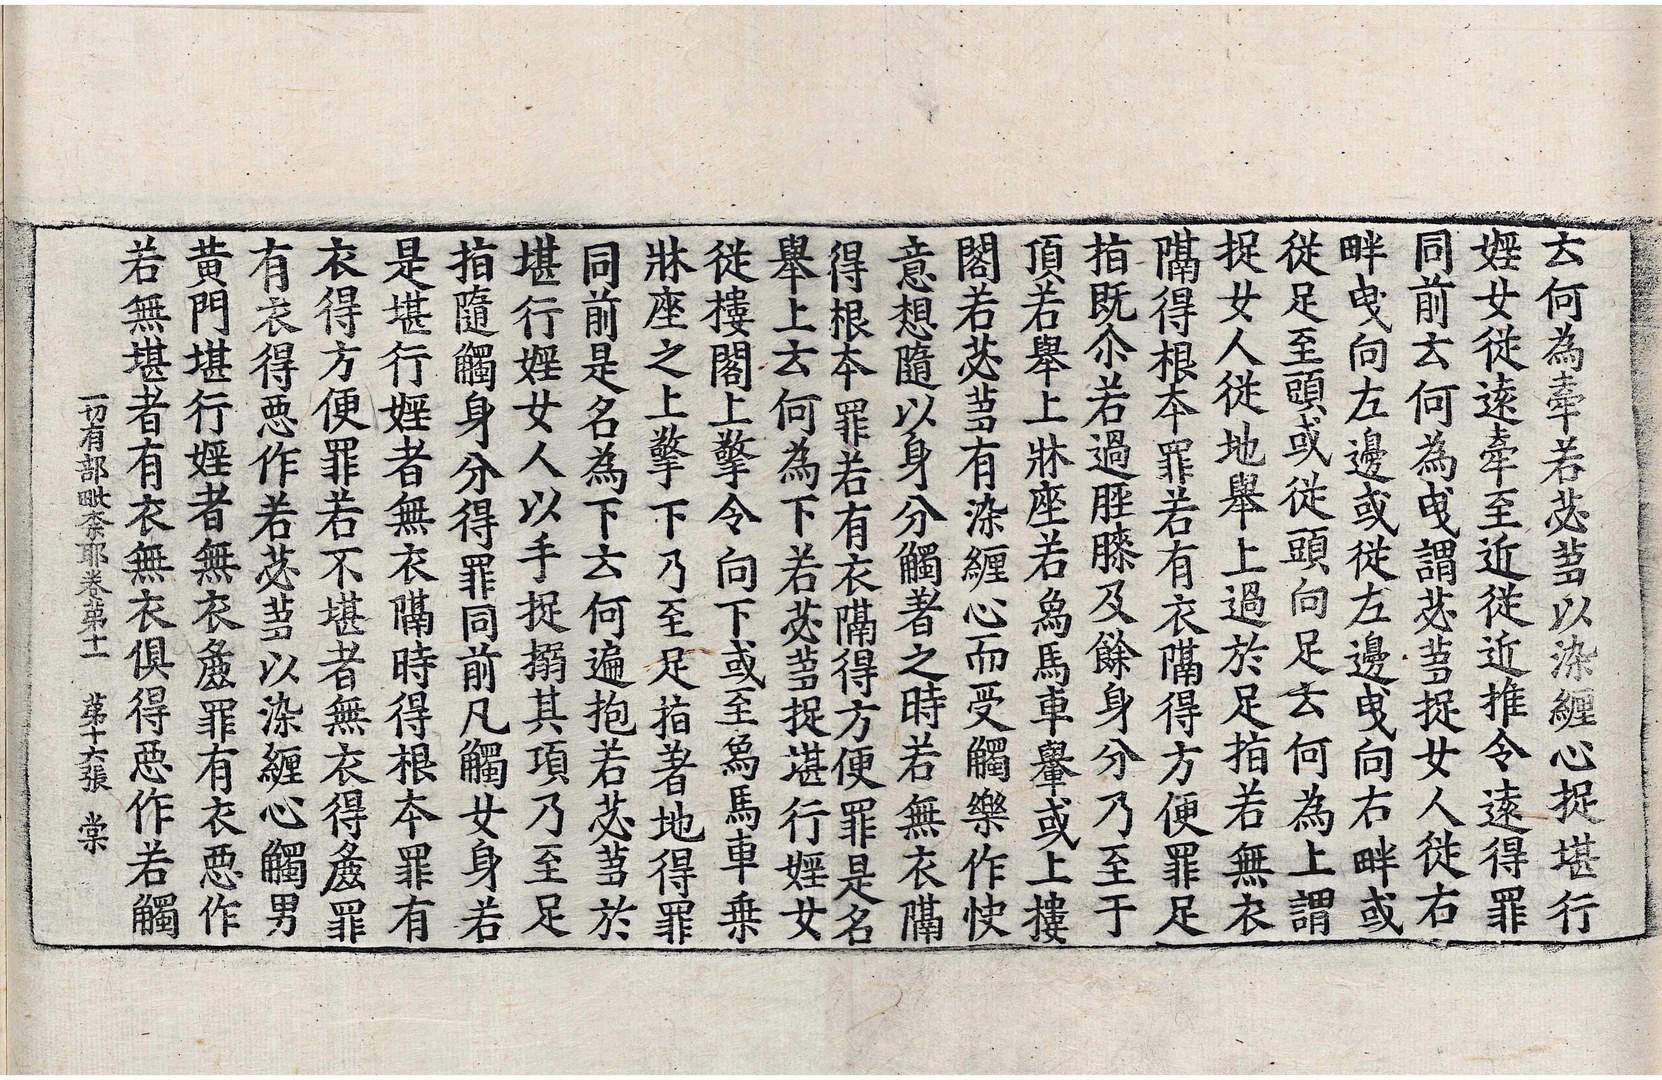 云何為牽若苾芻以染纏心捉堪行
婬女從遠牽至近從近推令遠得罪
同前云何為曳謂苾芻捉女人從右
畔曳向左邊或從左邊曳向右畔或
從足至頭或從頭向足去何為上謂
捉女人從地舉上過於足指若無衣
隔得根本罪若有衣隔得方便罪足
指既尒若過脛膝及餘身分乃至于
頂若舉上牀座若象馬車轝或上樓
閣若苾芻有染纏心而受觸樂作快
意想隨以身分觸著之時若無衣隔
得根本罪若有衣隔得方便罪是名
舉上云何為下若苾芻捉堪行婬女
從樓閣上擎令向下或至象馬車乗
牀座之上擎下乃至足指著地得罪
同前是名為下云何遍抱若苾芻於
堪行婬女人以手捉搦其項乃至足
指隨觸身分得罪同前凡觸女身若
是堪行婬者無衣隔時得根本罪有
衣得方便罪若不堪者無衣得麁罪
有衣得惡作若苾芻以染纏心觸男
黄門堪行婬者無衣麁罪有衣惡作
若無堪者有衣無衣俱得惡作若觸
一切有部毗奈耶卷第十一 第十六張 棠